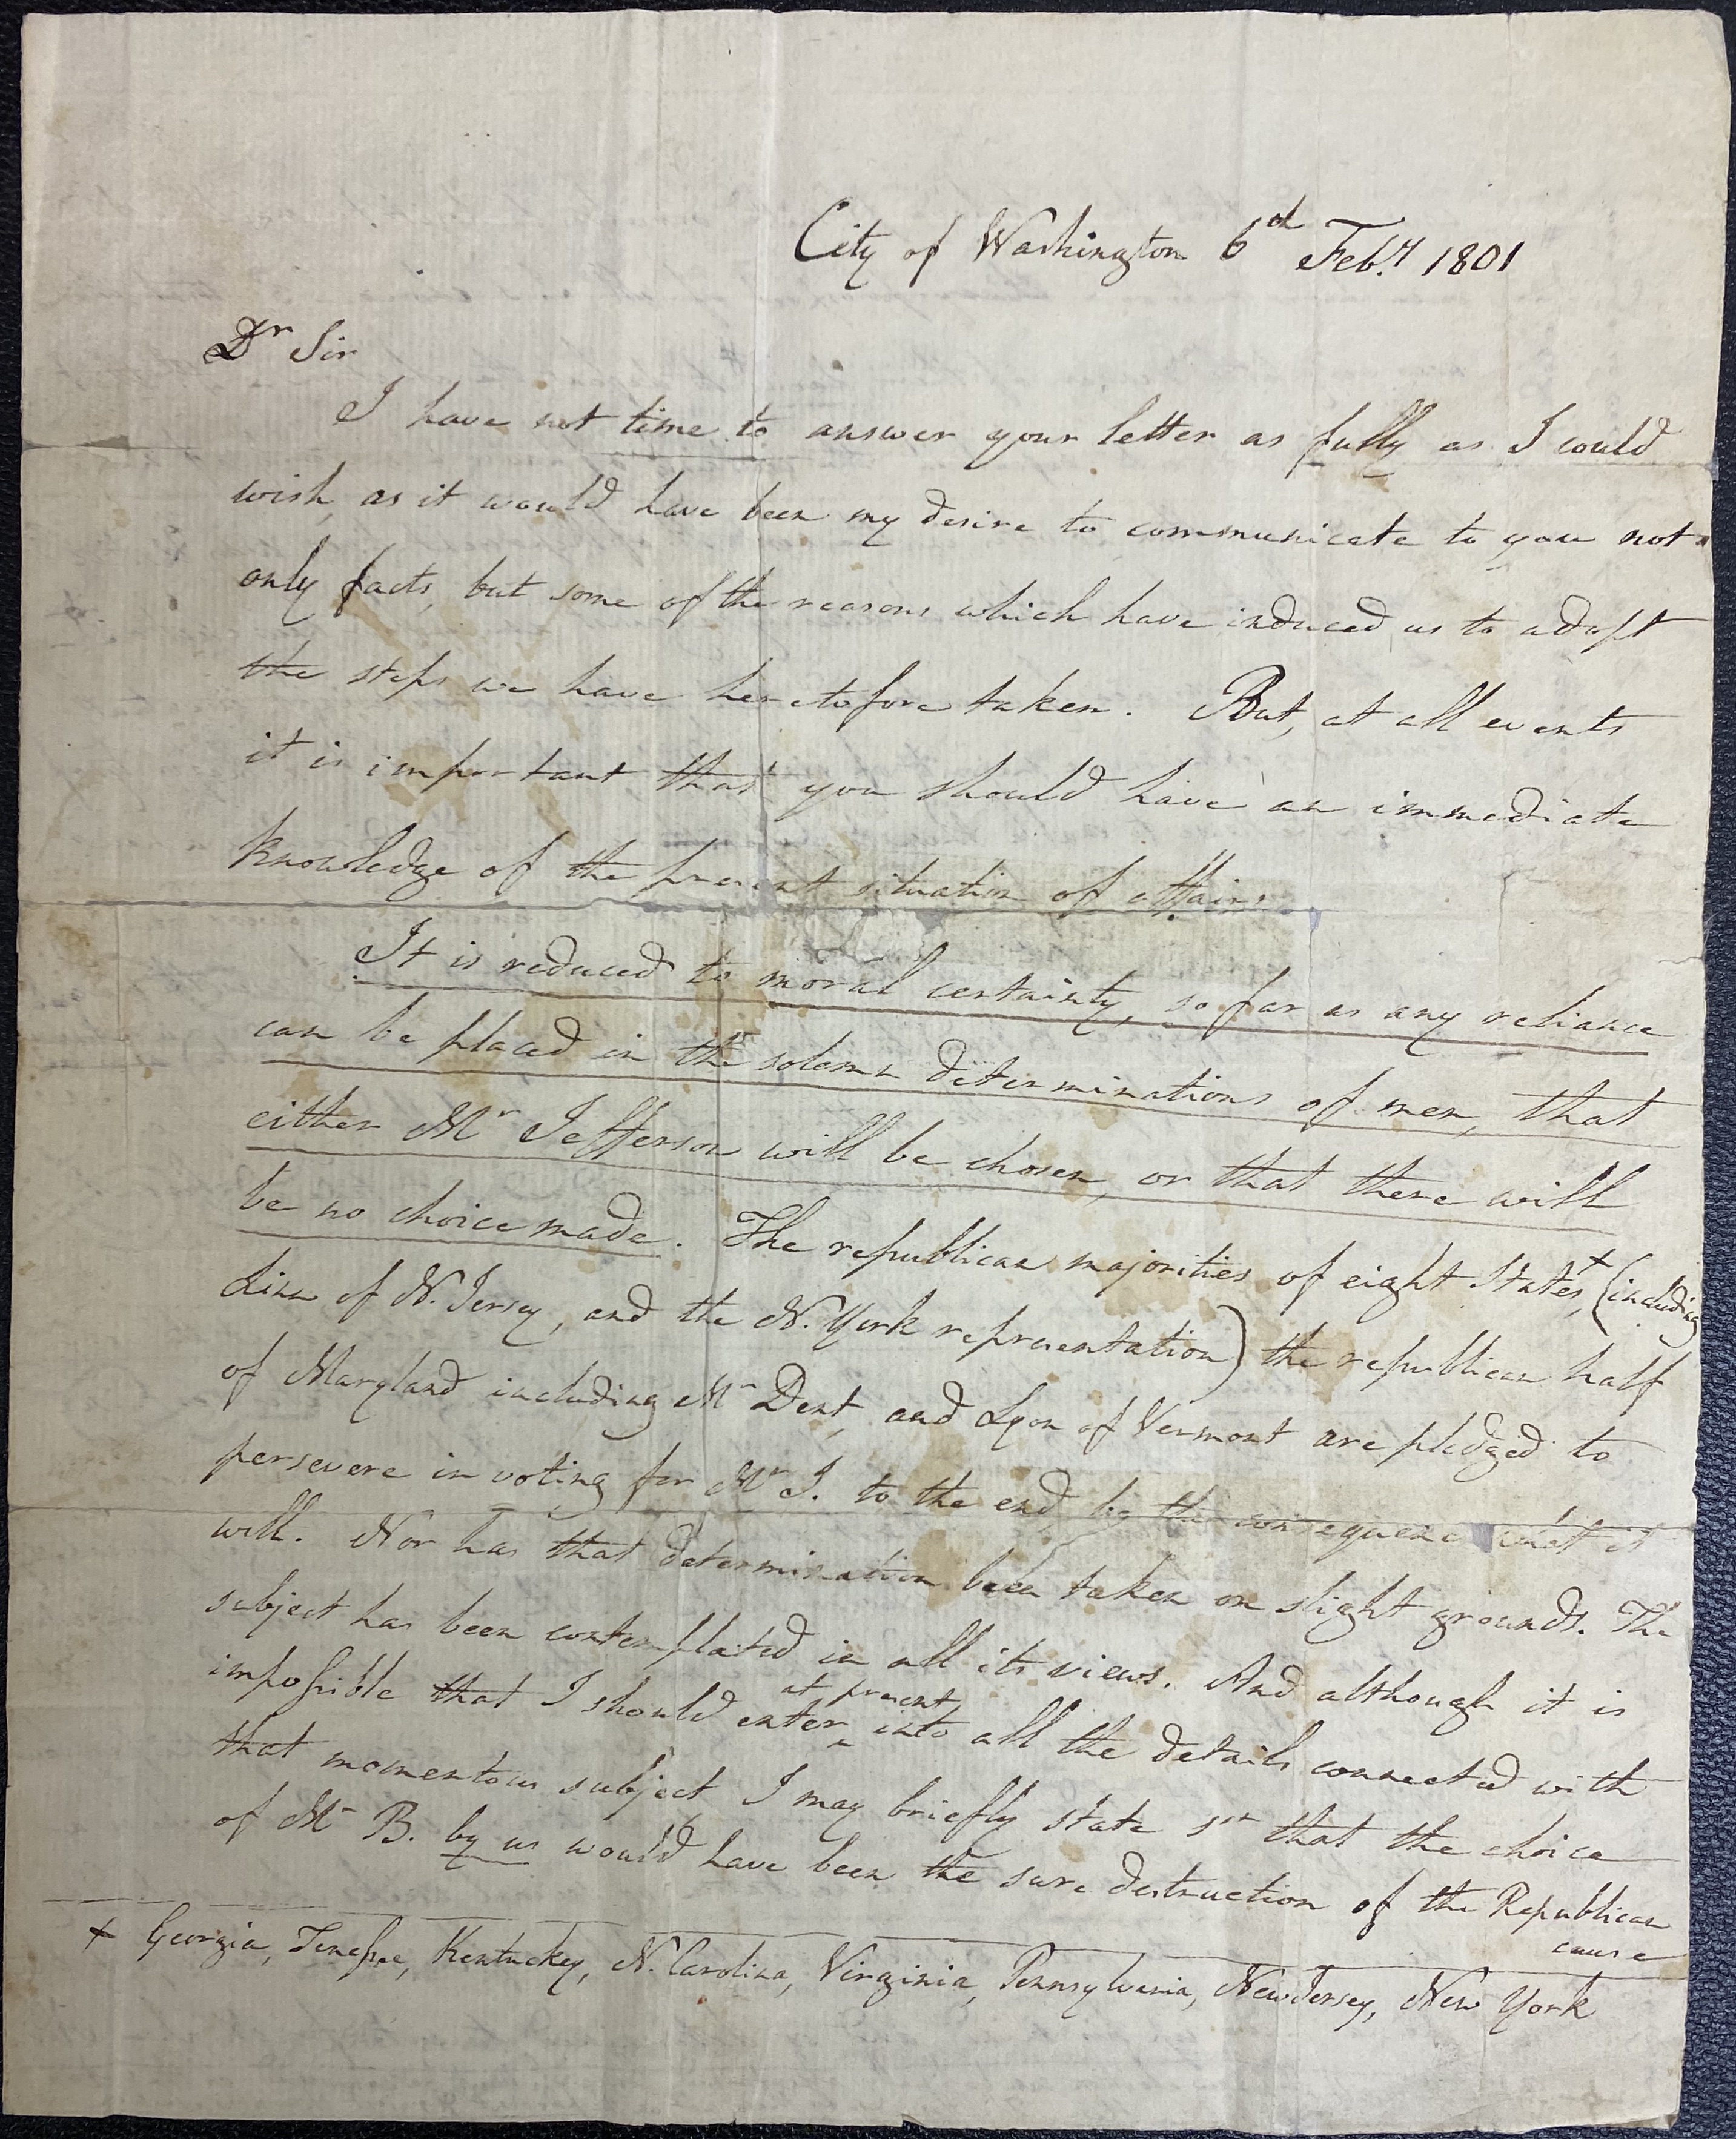 City of Washington 6th Feby. 1801
Dr Sir
I have not time to answer your letter as fully as I could
wish, as it would have been my desire to communicate to you not
only facts, but some of the reasons which have induced us to adopt
the steps we have heretofore taken. But, at all events
it is important that you should have an immediate
knowledge of the present situation of affairs.
It is reduced to moral certainty, so far as any reliance
can be placed in the solemn determinations of men, that
either Mr Jefferson will be chosen, or that there will
be no choice made. The republican majorities of eight States,+ (including
Linn of N. Jersey, and the N. York representation) the republican half
of Maryland including Mr Dent, and Lyon of Vermont are pledged to
persevere in voting for Mr J. to the end, be the consequence what it
will. Nor has that determination been taken on slight grounds. The
subject has been contemplated in all its views. And although it is
impossible that I should enter at present into all the details connected with
that momentous subject I may briefly state 1st that the choice
of Mr B. by us would have been the sure destruction of the Republican
cause
+ Georgia, Tenessee, Kentuckey, N. Carolina, Virginia, Pennsylvania, New Jersey, New York